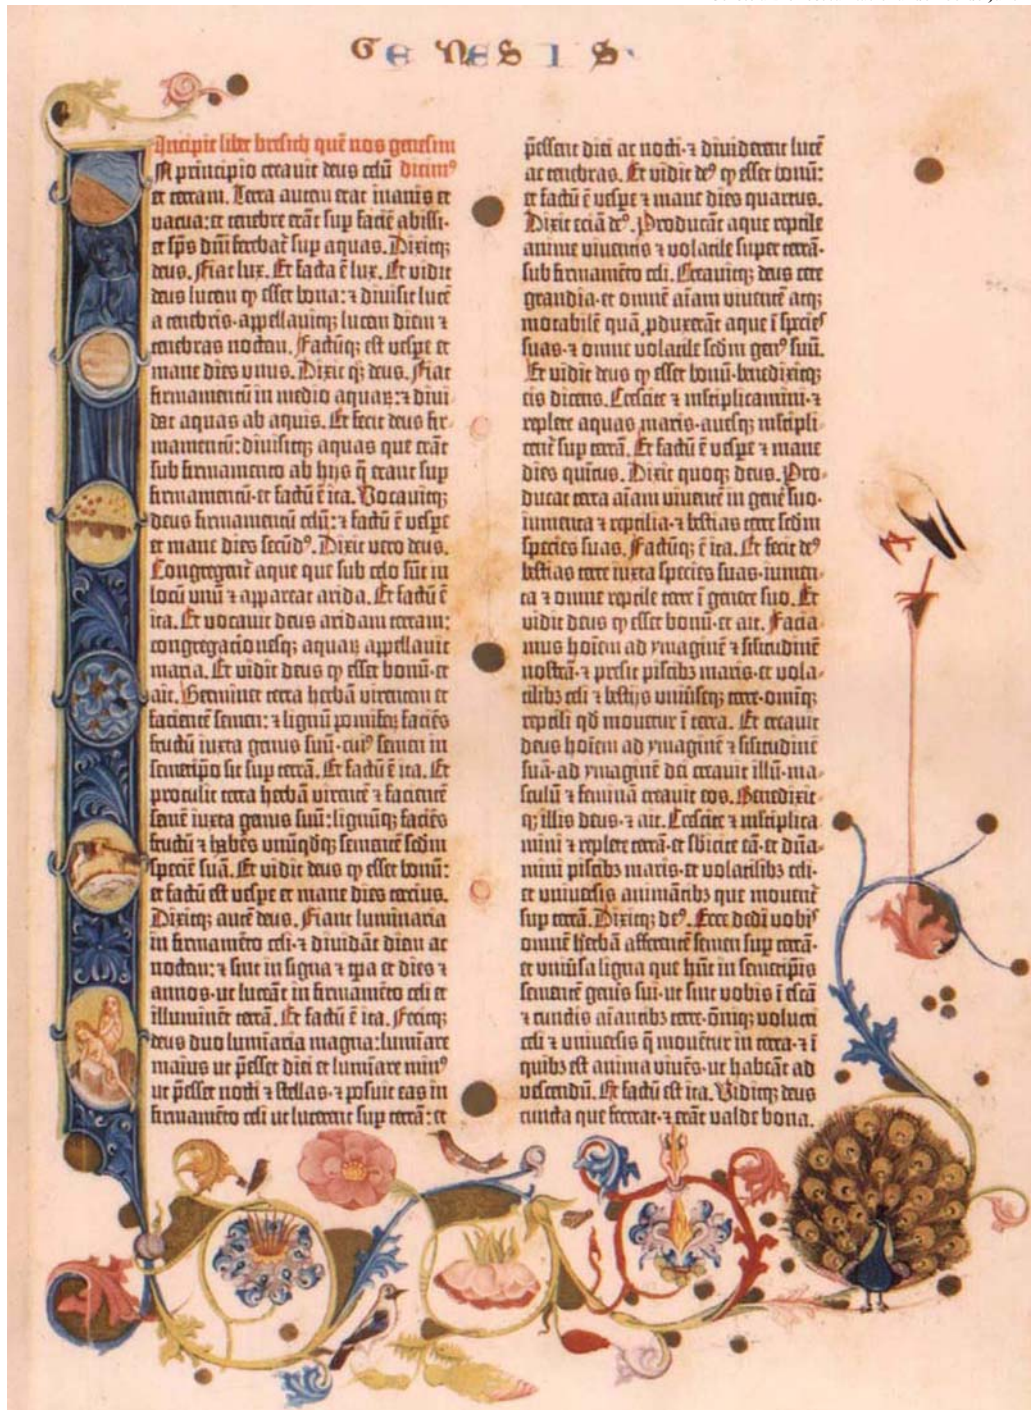 GENESIS
Incipit liber bresich quē nos genesim
In principio creavit deus celū dicimꝰ
et terram. Terra autem erat inanis et
vacua: et tenebre erāt sup faciē abissi·
et sp̄s dn̄i ferebat̄ sup aquas. Dixitqꝫ
deus. Fiat lux. Et facta ē lux. Et vidit
deus lucem ꝙ esset bona: ⁊ divisit lucē
a tenebris·appellavitqꝫ lucem diem ⁊
tenebras noctem. Factūqꝫ est vespe et
mane dies unus. Dixit qꝫ deus. Fiat
firmamentū in medio aquaꝝ: ⁊ divi-
dat aquas ab aquis. Et fecit deus fir-
mamentū: divisitqꝫ aquas que erāt
sub firmamento ab hijs q̄ erant sup
firmamentū·et factū ē ita. Vocavitqꝫ
deus firmamentū celū: ⁊ factū ē vespe
et mane dies secūdꝰ. Dixit vero deus.
Congregent̄ aque que sub celo sūt in
locū unū ⁊ appareat arida. Et factū ē
ita. Et vocavit deus aridam terram:
congregacionesqꝫ aquaꝝ appellavit
maria. Et vidit deus ꝙ esset bonū·et
ait. Germinet terra herbā virentem et
facientē semen: ⁊ lignū pomifeꝝ faciēs
fructū iuxta genus suū·cuiꝰ semen in
semetip̄o sit sup terrā. Et factū ē ita. Et
protulit terra herbā virentē ⁊ facientē
semē iuxta genus suū: lignūqꝫ faciēs
fructū ⁊ habēs unūqdqꝫ sementē scd̄m
speciē suā. Et vidit deus ꝙ esset bonū:
et factū est vespe et mane dies tercius.
Dixitqꝫ autē deus. Fiant luminaria
in firmamēto celi·⁊ dividāt diem ac
noctem: ⁊ sint in signa ⁊ tp̄a et dies ⁊
annos·ut luceāt in firmamēto celi et
illuminēt terrā. Et factū ē ita. Fecitqꝫ
deus duo lumīaria magna: lumīare
maius ut p̄esset diei et lumīare minꝰ
ut p̄esset nocti ⁊ stellas·⁊ posuit eas in
firmamēto celi ut lucerent sup terrā: et
p̄essent diei ac nocti·⁊ dividerent lucē
ac tenebras. Et vidit deꝰ ꝙ esset bonū:
et factū ē vespe ⁊ mane dies quartus.
Dixit eciā deꝰ. Producāt aque reptile
anime viventis ⁊ volatile super terrā·
sub firmamēto celi. Creavitqꝫ deus cete
grandia·et omnē aīam viventē atqꝫ
motabilē quā ꝓduxerāt aque ī species
suas·⁊ omne volatile scd̄m genꝰ suū.
Et vidit deus ꝙ esset bonū·benedixitqꝫ
eis dicens. Crescite ⁊ ml̄tiplicamini·⁊
replete aquas maris·avesqꝫ ml̄tipli-
cent̄ sup terrā. Et factū ē vespe ⁊ mane
dies quītus. Dixit quoqꝫ deus. Pro-
ducat terra aīam viventē in genē suo·
iumenta ⁊ reptilia·⁊ bestias terre scd̄m
species suas. Factūqꝫ ē ita. Et fecit deꝰ
bestias terre iuxta species suas·iumen-
ta ⁊ omne reptile terre ī genere suo. Et
vidit deus ꝙ esset bonū·et ait. Facia-
mus hoīem ad ymaginē ⁊ sil̄itudinē
nostrā·⁊ presit piscibꝫ maris·et vola-
tilibꝫ celi ⁊ bestijs univ̄seqꝫ terre·omīqꝫ
reptili qd̄ movetur ī terra. Et creavit
deus hoīem ad ymaginē ⁊ sil̄itudinē
suā·ad ymaginē dei creavit illū·ma-
sculū ⁊ feminā creavit eos. Benedixit-
qꝫ illis deus·⁊ ait. Crescite ⁊ ml̄tiplica-
mini ⁊ replete terrā·et sb̄icite eā·et dn̄a-
mini piscibꝫ maris·et volatilibꝫ celi·
et universis animātibꝫ que movent̄
sup terrā. Dixitqꝫ deꝰ. Ecce dedi vobis
omnē herbā afferentē semen sup terrā·
et univ̄sa ligna que hn̄t in semetip̄is
sementē genīs sui·ut sint vobis ī escā
⁊ cunctis aīantibꝫ terre·ōniqꝫ volucri
celi ⁊ universis q̄ movētur in terra·⁊ ī
quibꝫ est anima vivēs·ut habeāt ad
vescendū. Et factū est ita. Viditqꝫ deus
cuncta que fecerat·⁊ erāt valde bona.